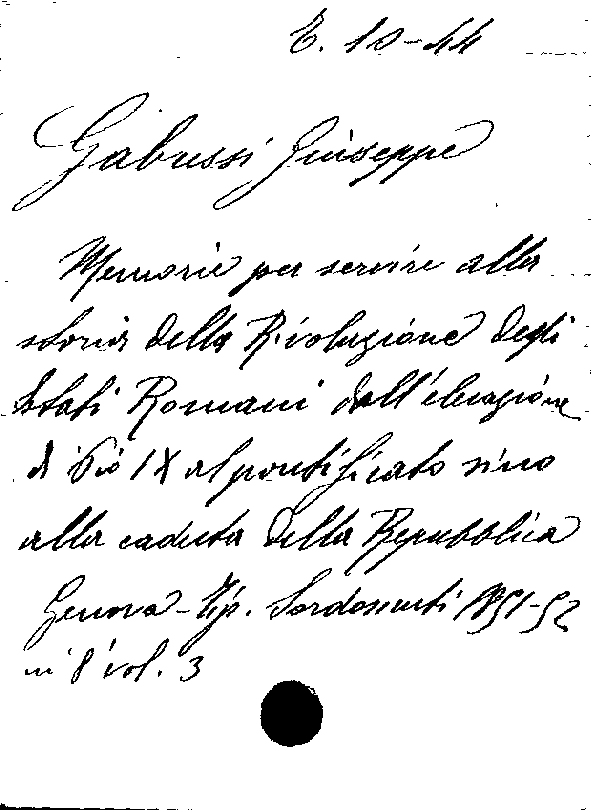 E. 10-44
Gabussi Giuseppe
Memorie per servire alla
storia della Rivoluzione degli
Stati Romani dall'elevazione
di Pio IX al pontificato sino
alla caduta della Repubblica
Genova - Tip. Sordomuti 1851-52
in 8° vol. 3